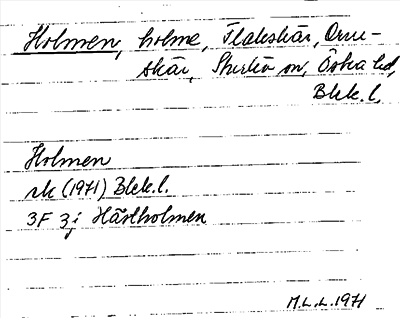 Holmen, holme, Flakskär, Orrn-
skär, Sturkö sn, Östra hd,
Blek. l.
Holmen
rk (1971) Blek. l.
3F 3j Hästholmen
M.L.L. 1971